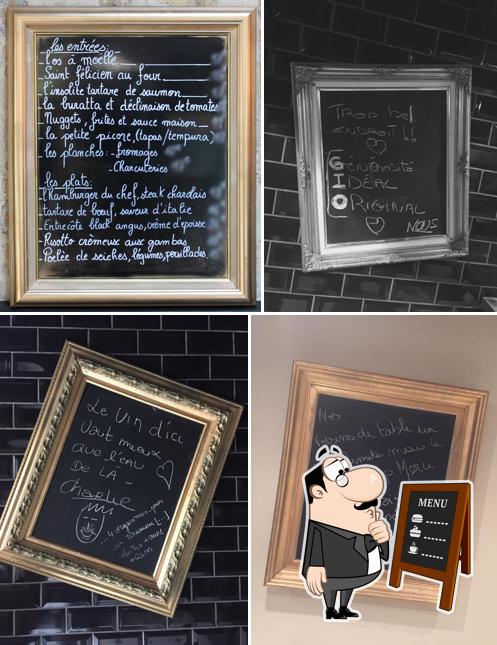 les entrées:
_l'os à moëlle
_Saint félicien au four
_l'insolite tartare de saumon
_la buratta et déclinaison de tomates
_Nuggets, frites et sauce maison
_la petite picore, (tapas/tempura)
_les planches: - fromages
- Charcuteries
les plats:
_l'hamburger du chef, steak charolais
_tartare de bœuf, saveur d'italie
_Entrecôte black angus, crème d'époisse
_Risotto crémeux aux gambas
_Poêlée de seiches, légumes, persillades
TROP bel
ENDROIT !!
GÉNÉROSITÉ
IDÉAL
ORIGINAL
NOUS
Le Vin d'ici
Vaut mieux
que l'eau
DE LÀ -
Charlie
Nos
de table un
mais le
Menu
MENU